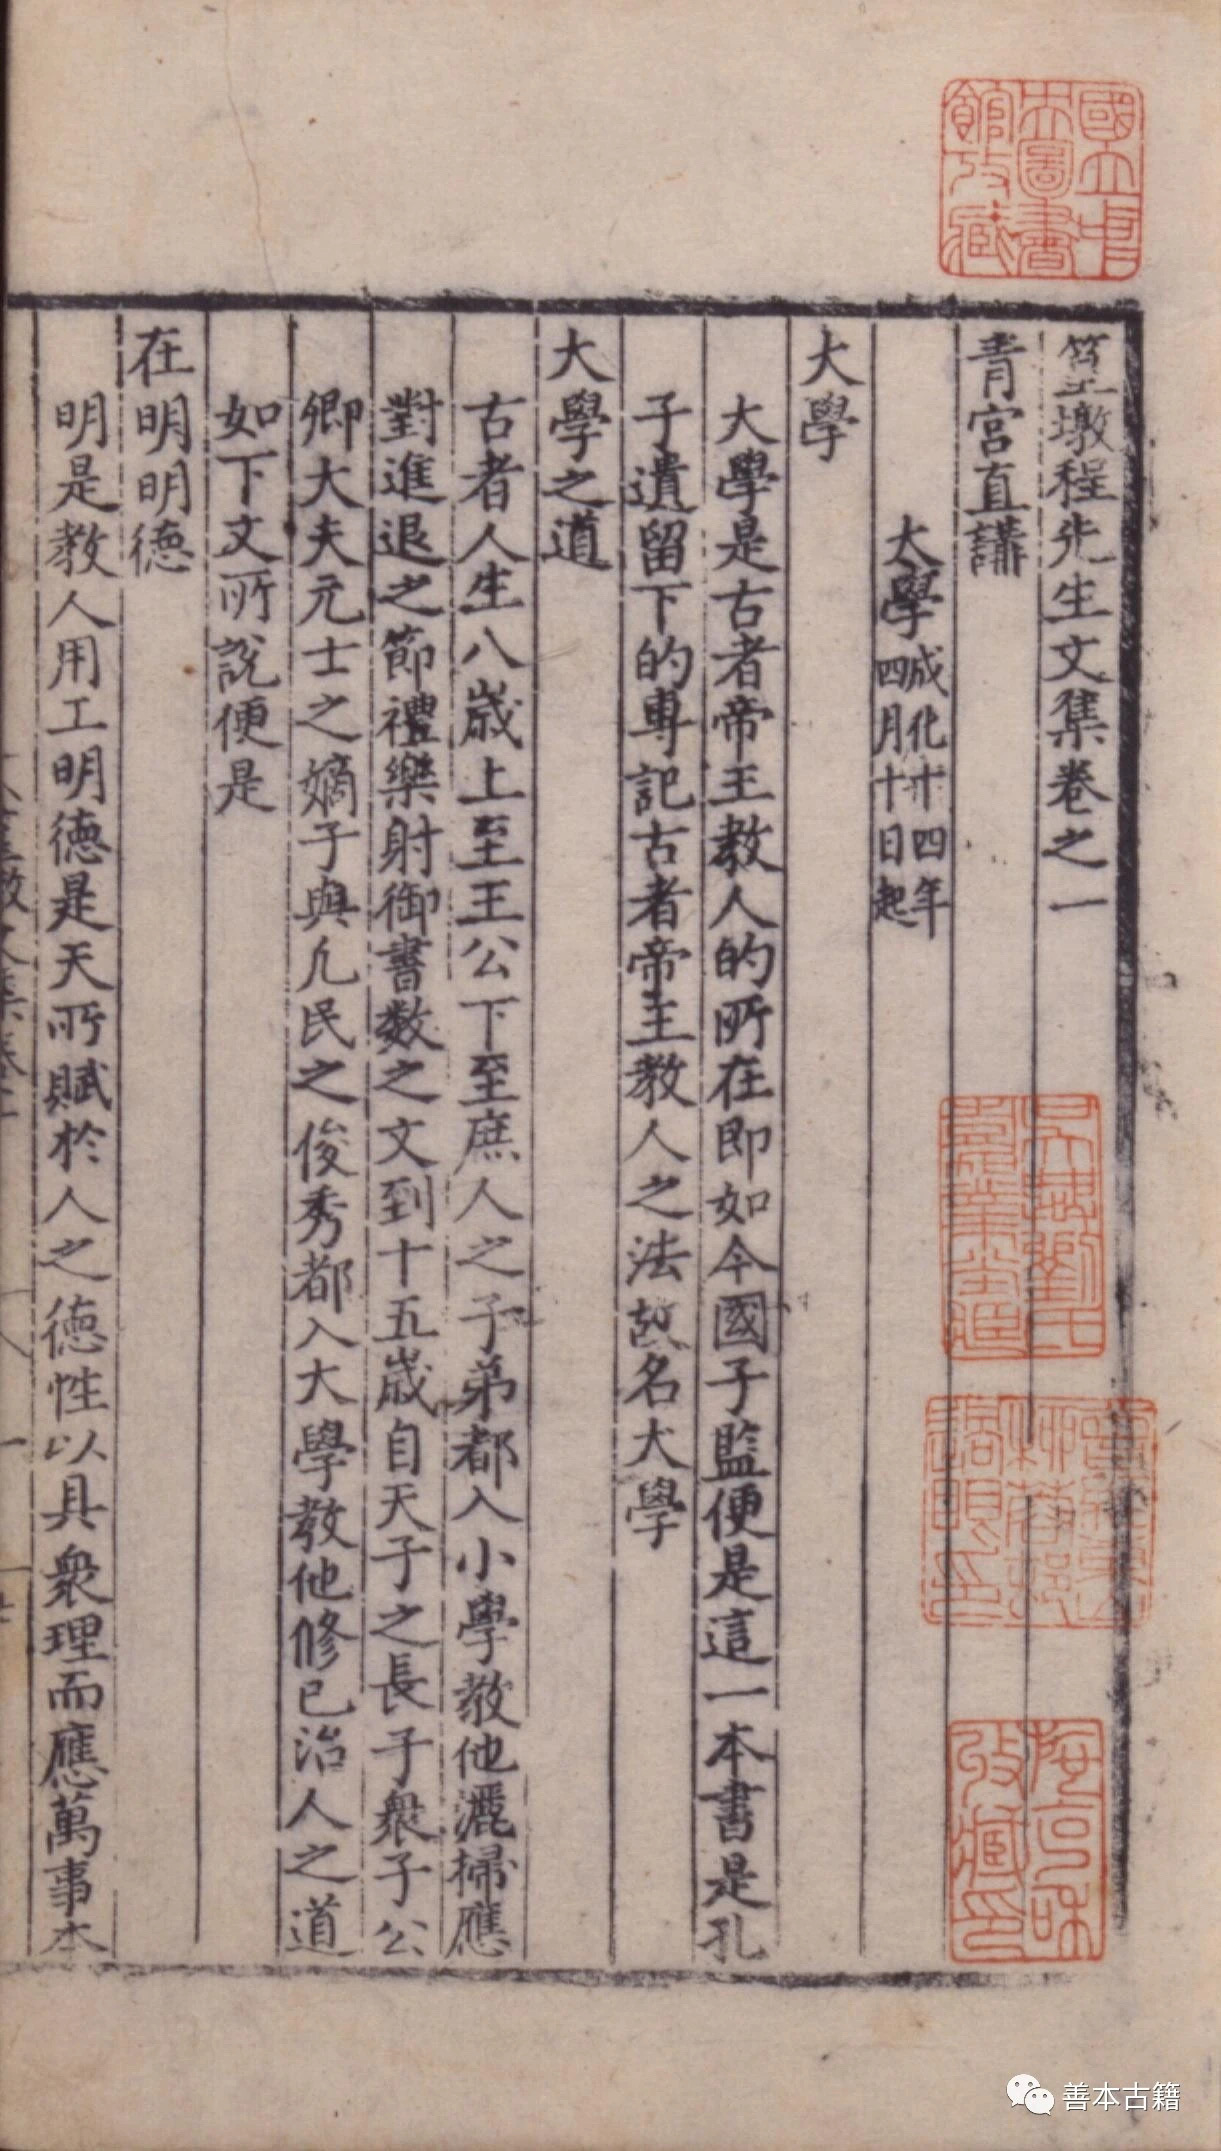 篁墩程先生文集卷之一
青宮直講
大學成化十四年四月十日起
大學
大學是古者帝王教人的所在即如今國子監便是這一本書是孔
子遺留下的專記古者帝王教人之法故名大學
大學之道
古者人生八歲上至王公下至庶人之子弟都入小學教他灑掃應
對進退之節禮樂射御書数之文到十五歲自天子之長子衆子公
卿大夫元士之嫡子與凡民之俊秀都入大學教他修已治人之道
如下文所說便是
在明明德
明是教人用工明德是天所賦於人之德性以具衆理而應萬事本
國立中央圖書館收藏
吳興劉氏嘉業堂藏
善本古籍